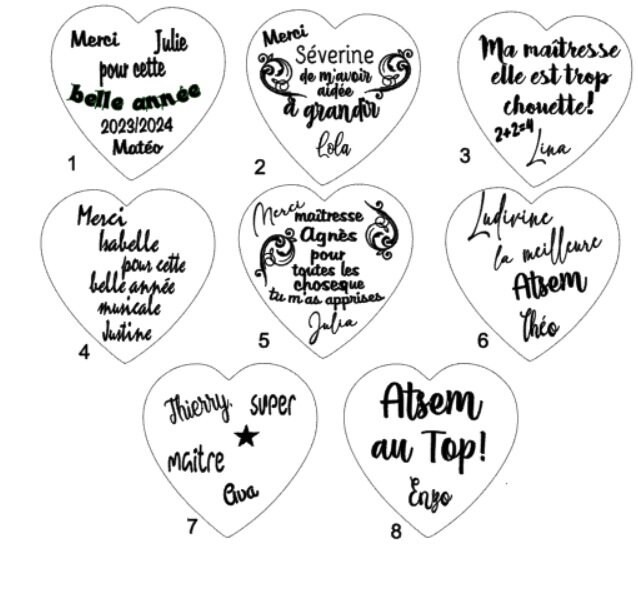 Merci Julie
pour cette
belle année
2023/2024
Matéo
1
Merci
Séverine
de m'avoir
aidée
à grandir
Lola
2
Ma maîtresse
elle est trop
chouette!
2+2=4
Lina
3
Merci
Isabelle
pour cette
belle année
musicale
Justine
4
Merci
maîtresse
Agnès
pour
toutes les
choseque
tu m'as apprises
Julia
5
Ludivine
la meilleure
Atsem
Théo
6
Thierry super
maitre
7
Atsem
au Top!
Enzo
8